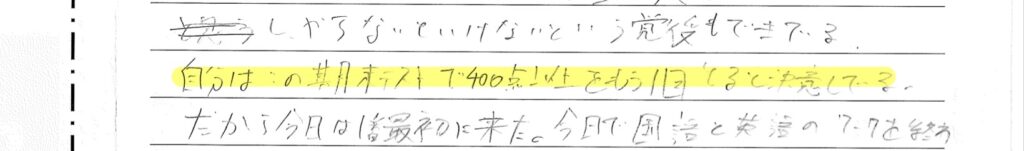 しかやらないといけないという覚後もできている。
自分はこの期末テストで400点以上をもう1回とると決意している。
だから今日は1番最初に来た。今日で国語と英語のワークを終わ